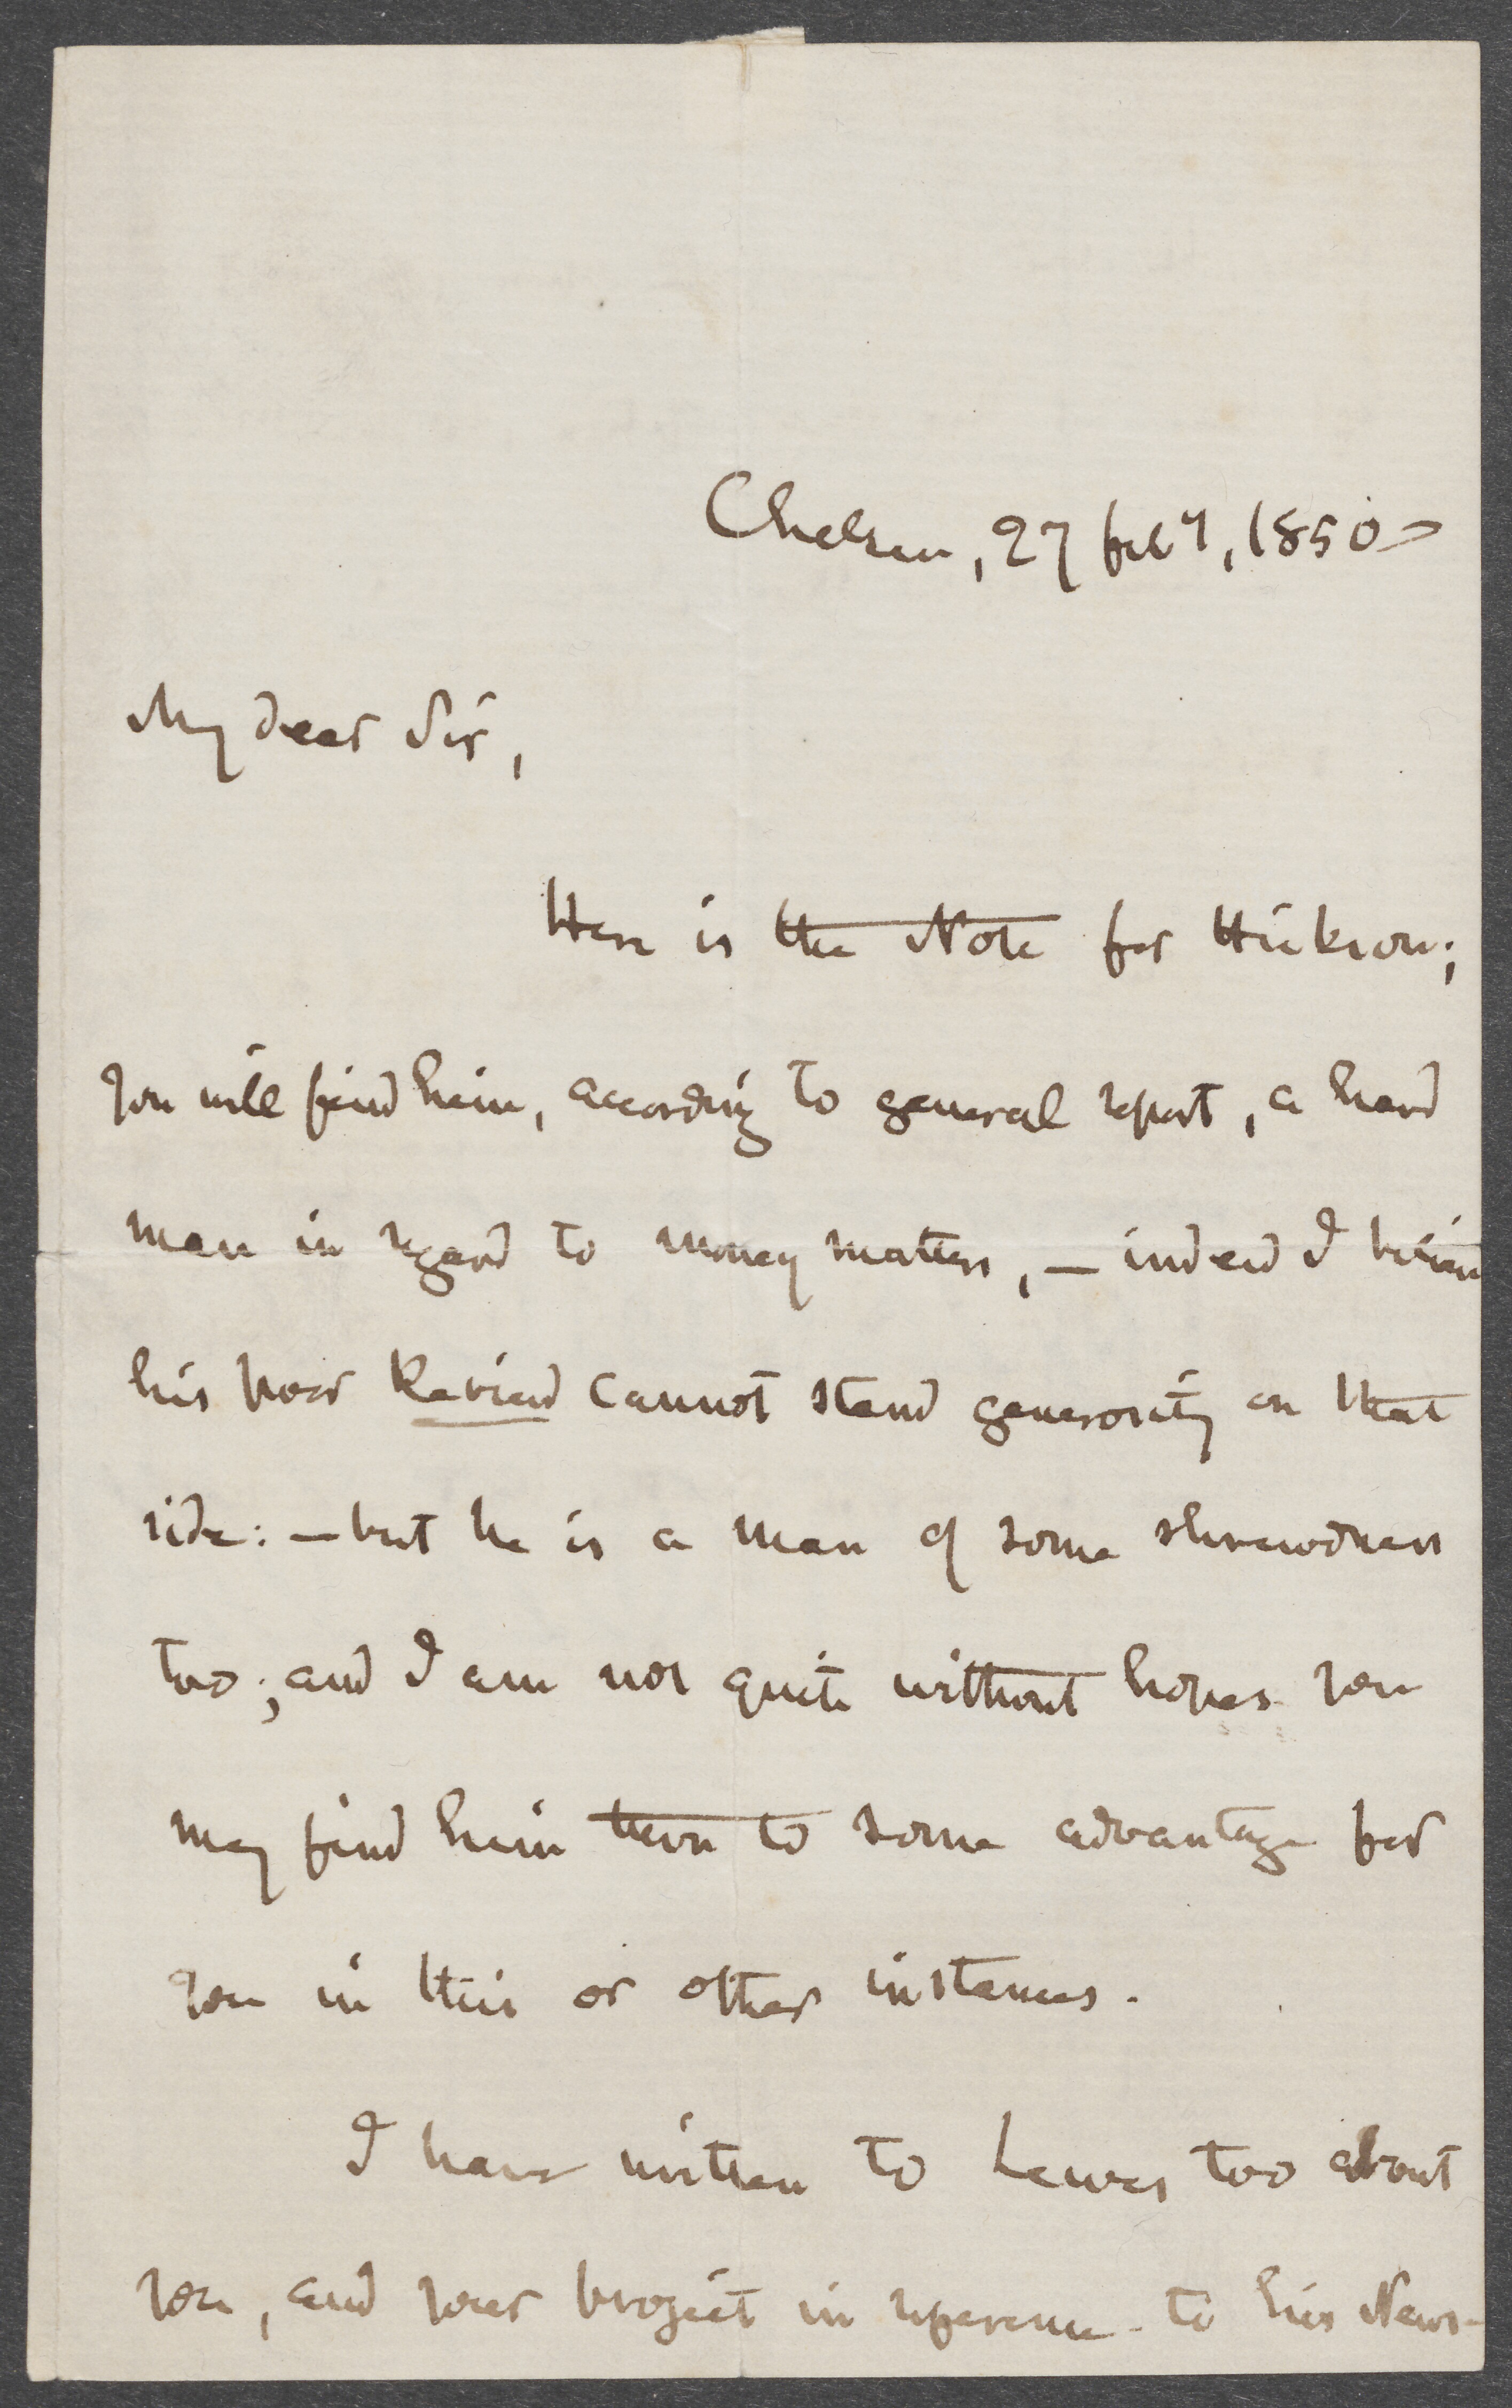 Chelsea, 27 feby, 1850
My dear Sir,
Here is the Note for Hickson;
you will find him, according to general report, a hard
man in regard to money matters, — indeed I believe
his poor Review cannot stand generosity on that
side: — but he is a man of some shrewdness
too; and I am not quite without hopes you
may find him turn to some advantage for
you in this or other instances.
I have written to Lewes too about
you, and your project in reference to his News-